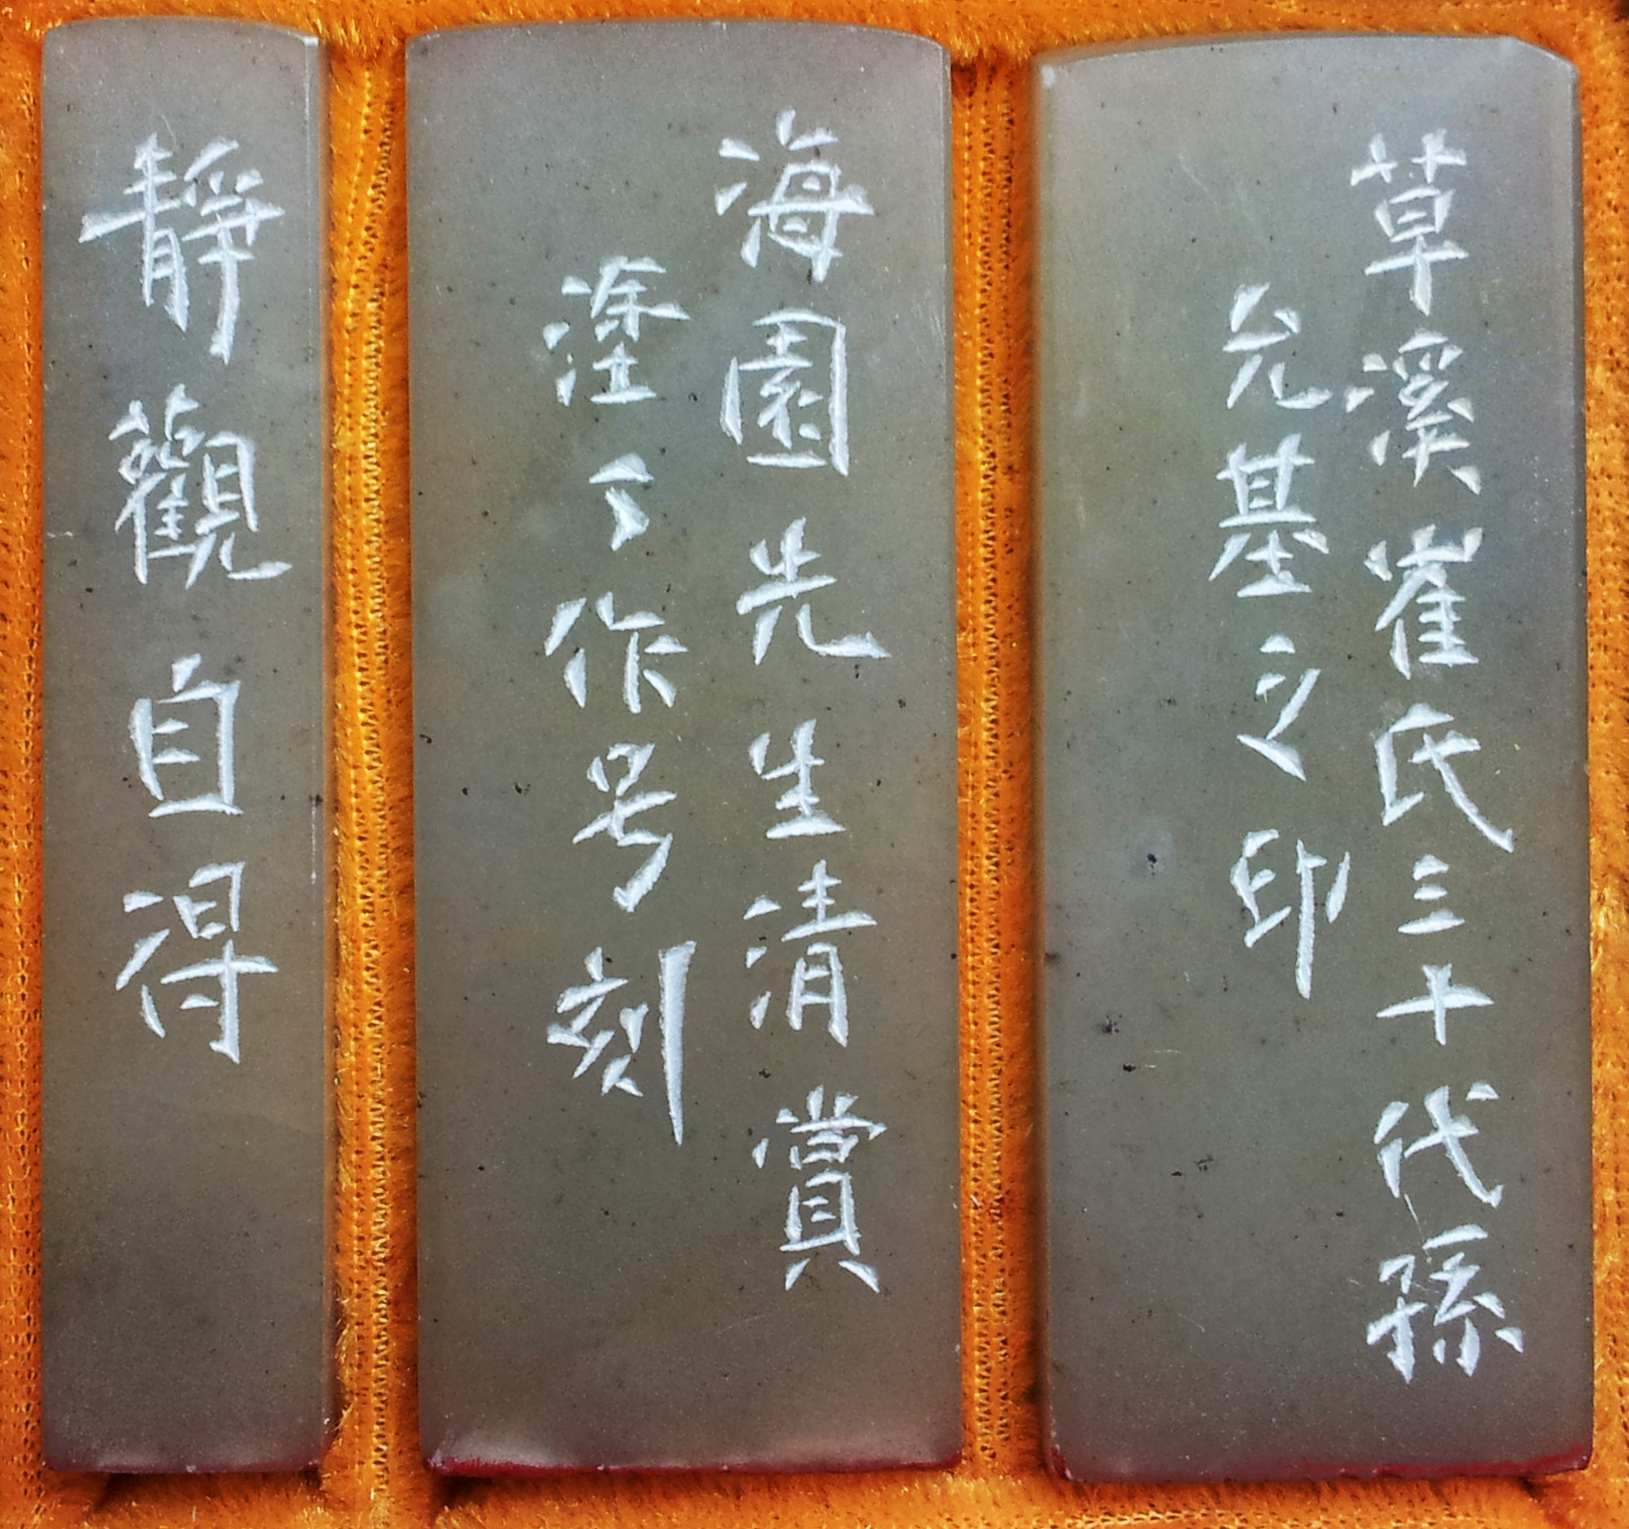 草溪崔氏三十代孫
允基之印
海園先生清賞
塗 作号刻
靜觀自得